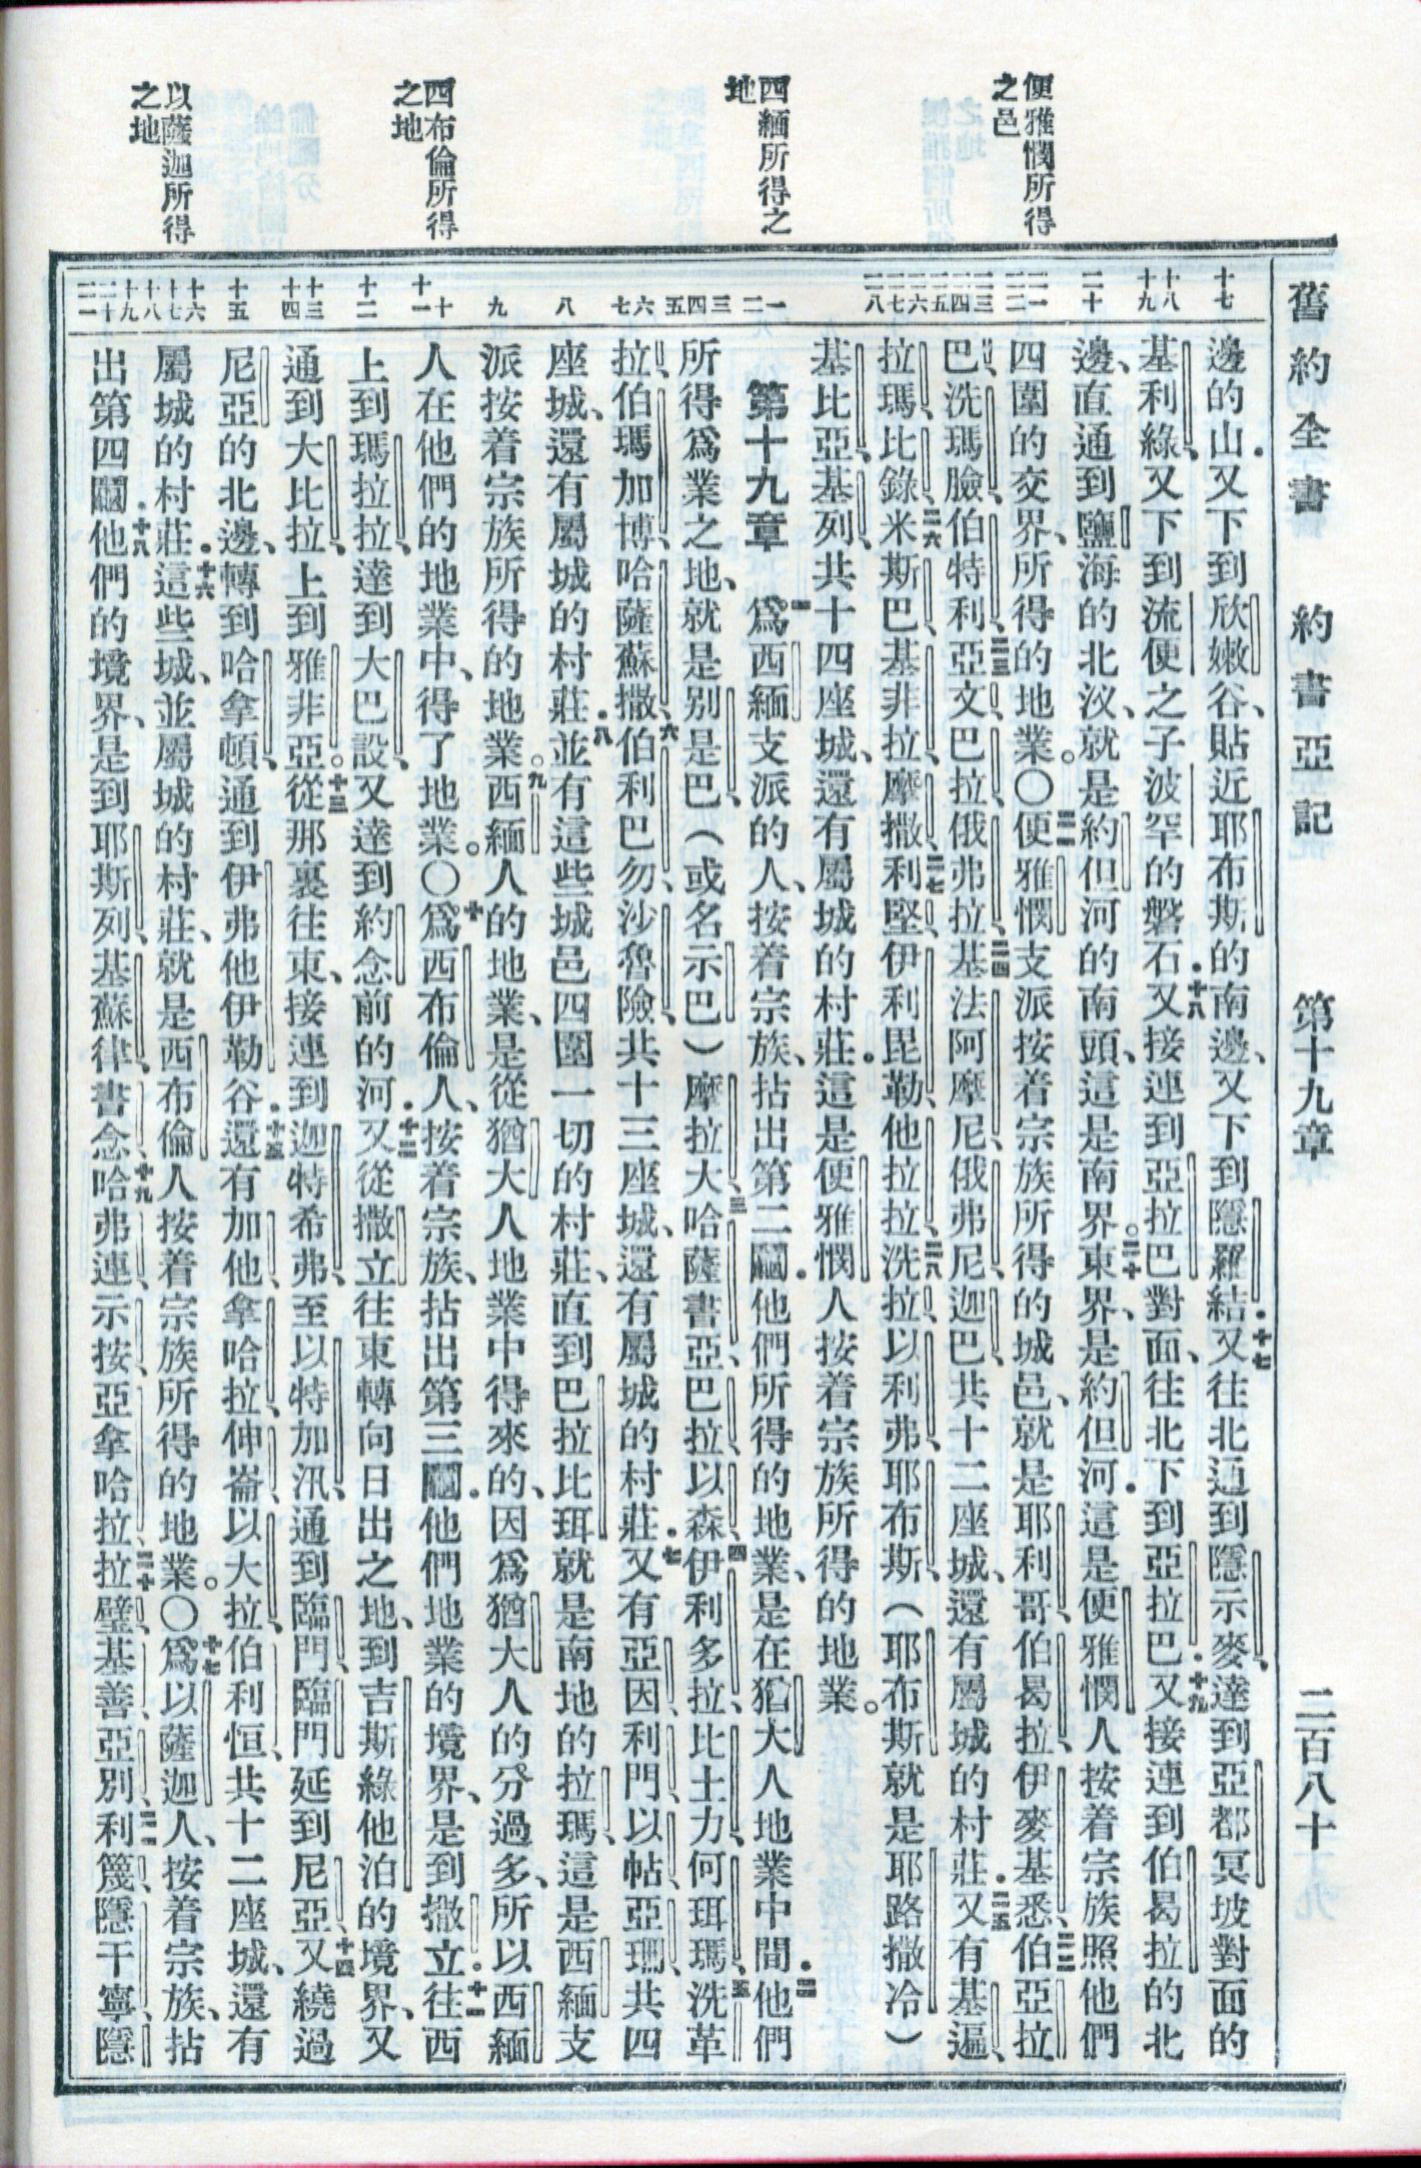 舊約全書　約書亞記　第十九章　二百八十
便雅憫所得
之邑
西緬所得之
地
西布倫所得
之地
以薩迦所得
之地
邊的山．又下到欣嫩谷、貼近耶布斯的南邊、又下到隱羅結．十七又往北通到隱示麥、達到亞都冥坡對面的
基利綠、又下到流便之子波罕的磐石．十八又接連到亞拉巴對面、往北下到亞拉巴．十九又接連到伯曷拉的北
邊、直通到鹽海的北汊、就是約但河的南頭、這是南界。二十東界、是約但河．這是便雅憫人按着宗族照他們
四圍的交界、所得的地業。〇二一便雅憫支派按着宗族所得的城邑、就是耶利哥、伯曷拉、伊麥基悉、二二伯亞拉
巴、洗瑪臉、伯特利、二三亞文、巴拉、俄弗拉、二四基法阿摩尼、俄弗尼、迦巴、共十二座城、還有屬城的村莊．二五又有基遍、
拉瑪、比錄、二六米斯巴、基非拉、摩撒、二七利堅、伊利毘勒、他拉拉、二八洗拉、以利弗、耶布斯、（耶布斯就是耶路撒冷）
基比亞、基列、共十四座城、還有屬城的村莊．這是便雅憫人按着宗族所得的地業。
第十九章　一爲西緬支派的人、按着宗族、拈出第二鬮．他們所得的地業、是在猶大人地業中間．二他們
所得爲業之地、就是別是巴、（或名示巴）摩拉大、三哈薩書亞、巴拉、以森、四伊利多拉、比土力、何珥瑪、五洗革
拉、伯瑪加博、哈薩蘇撒、六伯利巴勿、沙魯險、共十三座城、還有屬城的村莊．七又有亞因、利門、以帖、亞珊、共四
座城、還有屬城的村莊．八並有這些城邑四圍一切的村莊、直到巴拉比珥、就是南地的拉瑪、這是西緬支
派按着宗族所得的地業。九西緬人的地業、是從猶大人地業中得來的、因爲猶大人的分過多、所以西緬
人在他們的地業中、得了地業。〇十爲西布倫人、按着宗族、拈出第三鬮．他們地業的境界、是到撒立．十一往西
上到瑪拉拉、達到大巴設、又達到約念前的河．十二又從撒立往東轉向日出之地、到吉斯綠他泊的境界、又
通到大比拉、上到雅非亞。十三從那裏往東、接連到迦特希弗、至以特加汛、通到臨門、臨門延到尼亞、十四又繞過
尼亞的北邊、轉到哈拿頓、通到伊弗他伊勒谷．十五還有加他、拿哈拉、伸崙、以大拉、伯利恒、共十二座城、還有
屬城的村莊．十六這些城、並屬城的村莊、就是西布倫人按着宗族所得的地業。〇十七爲以薩迦人、按着宗族、拈
出第四鬮．十八他們的境界、是到耶斯列、基蘇律、書念、十九哈弗連、示按、亞拿哈拉、二十拉璧、基善、亞別、二一利篾、隱干寧、隱
十七
十八　十九
二十
二一　二二
二三　二四　二五　二六　二七　二八
一　二
三　四　五
六　七
八
九
十　十一
十二
十三　十四
十五
十六　十七　十八　十九　二十　二一